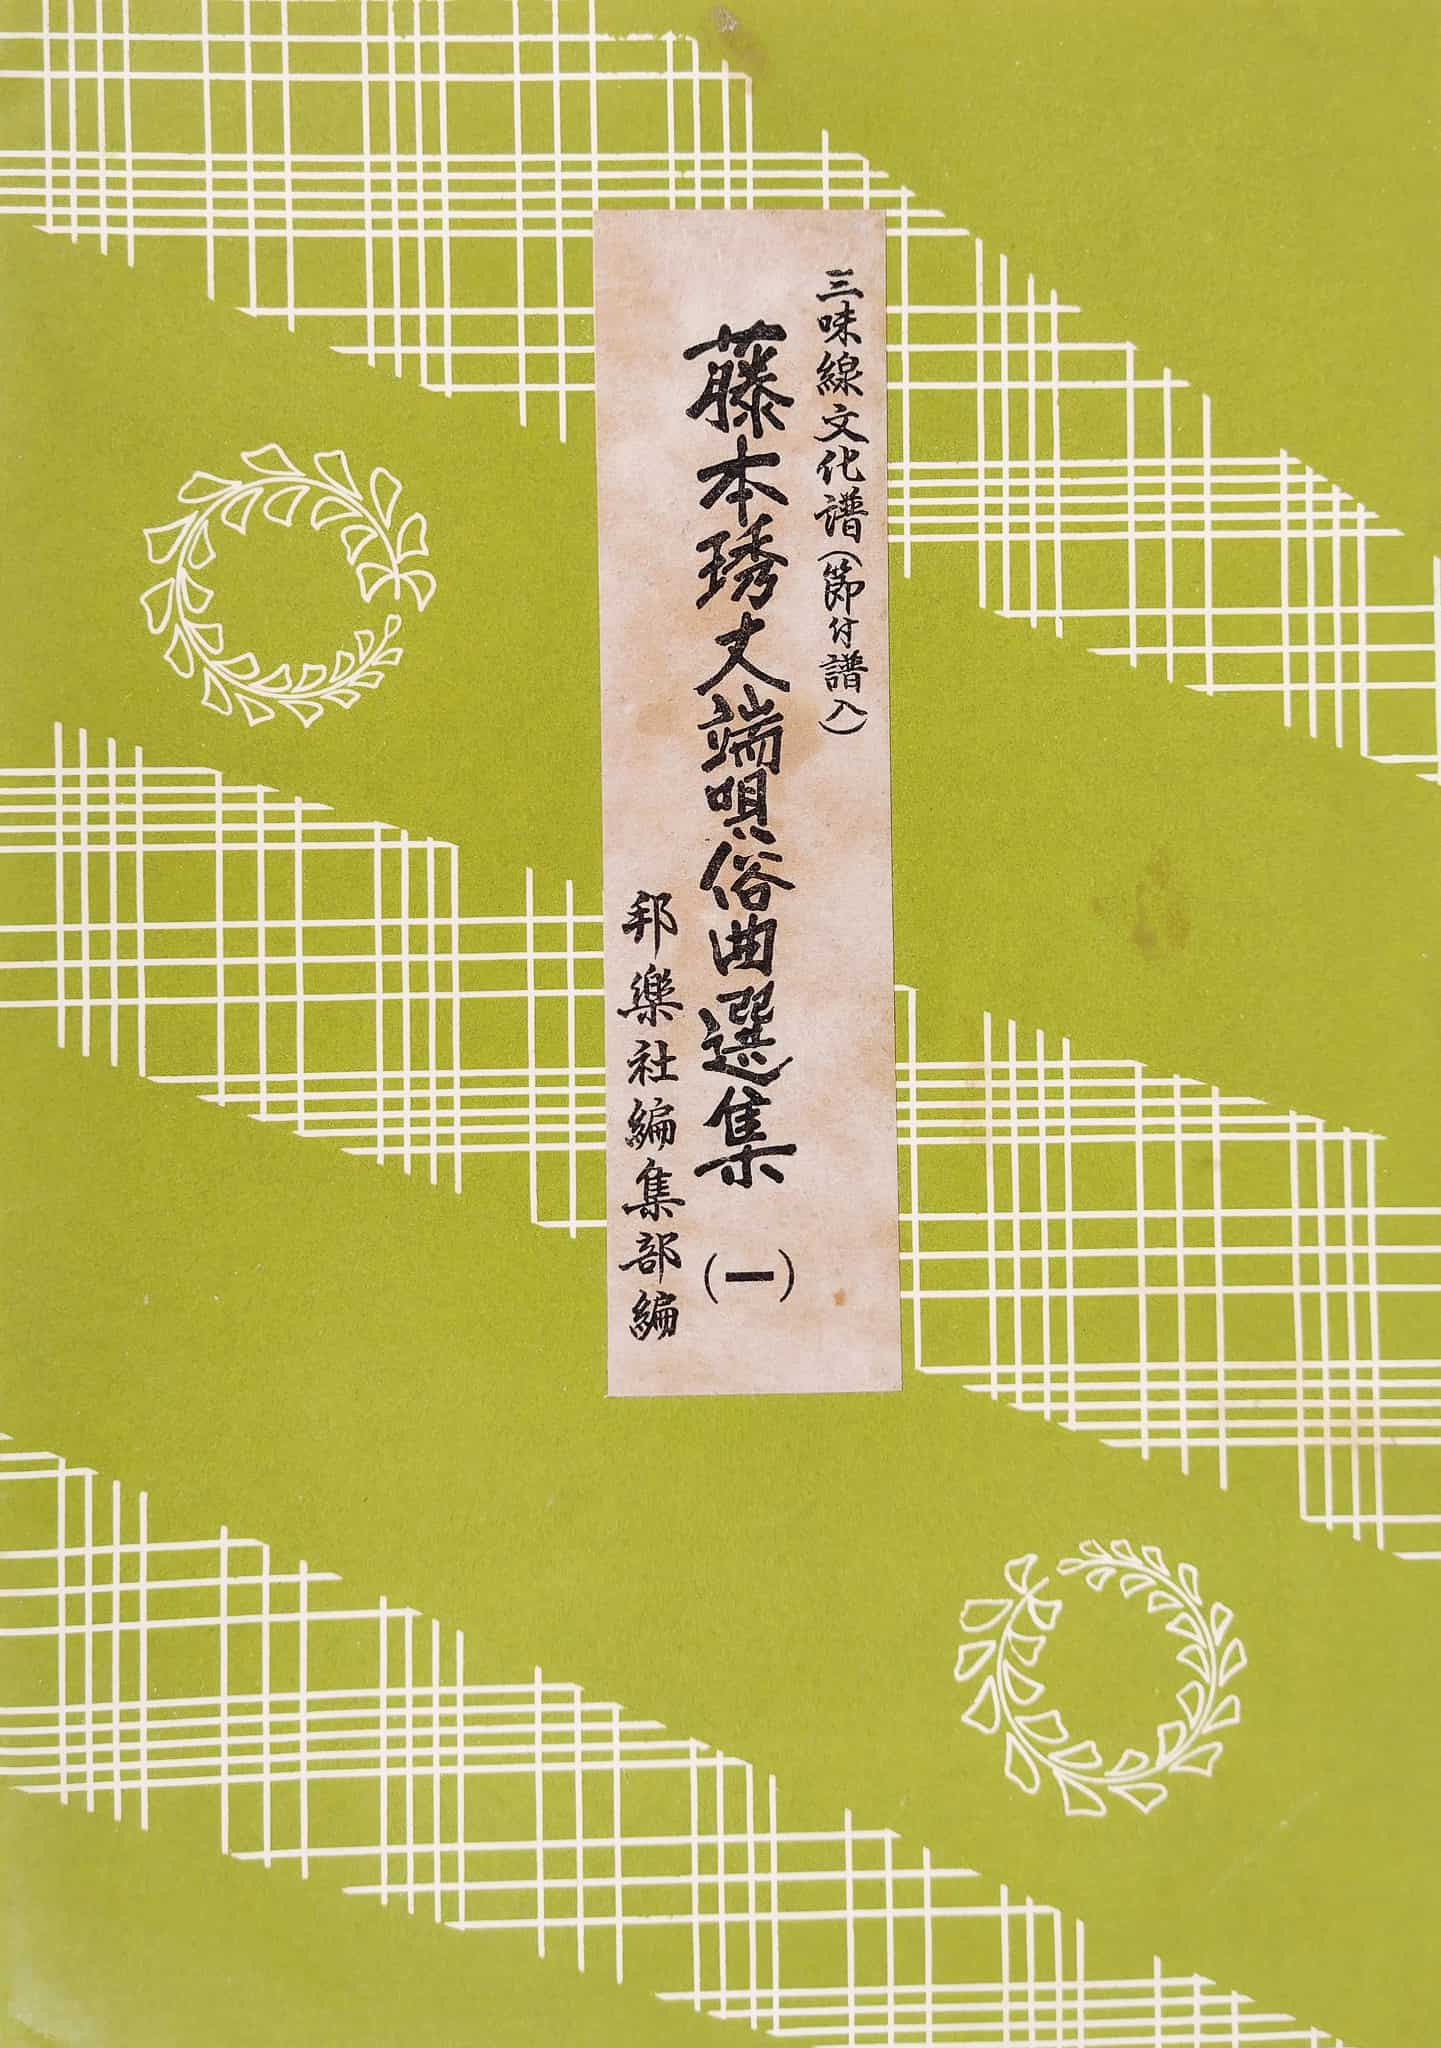 三味線文化譜(節付譜入)
藤本琇丈端唄俗曲選集(一)
邦楽社編集部編